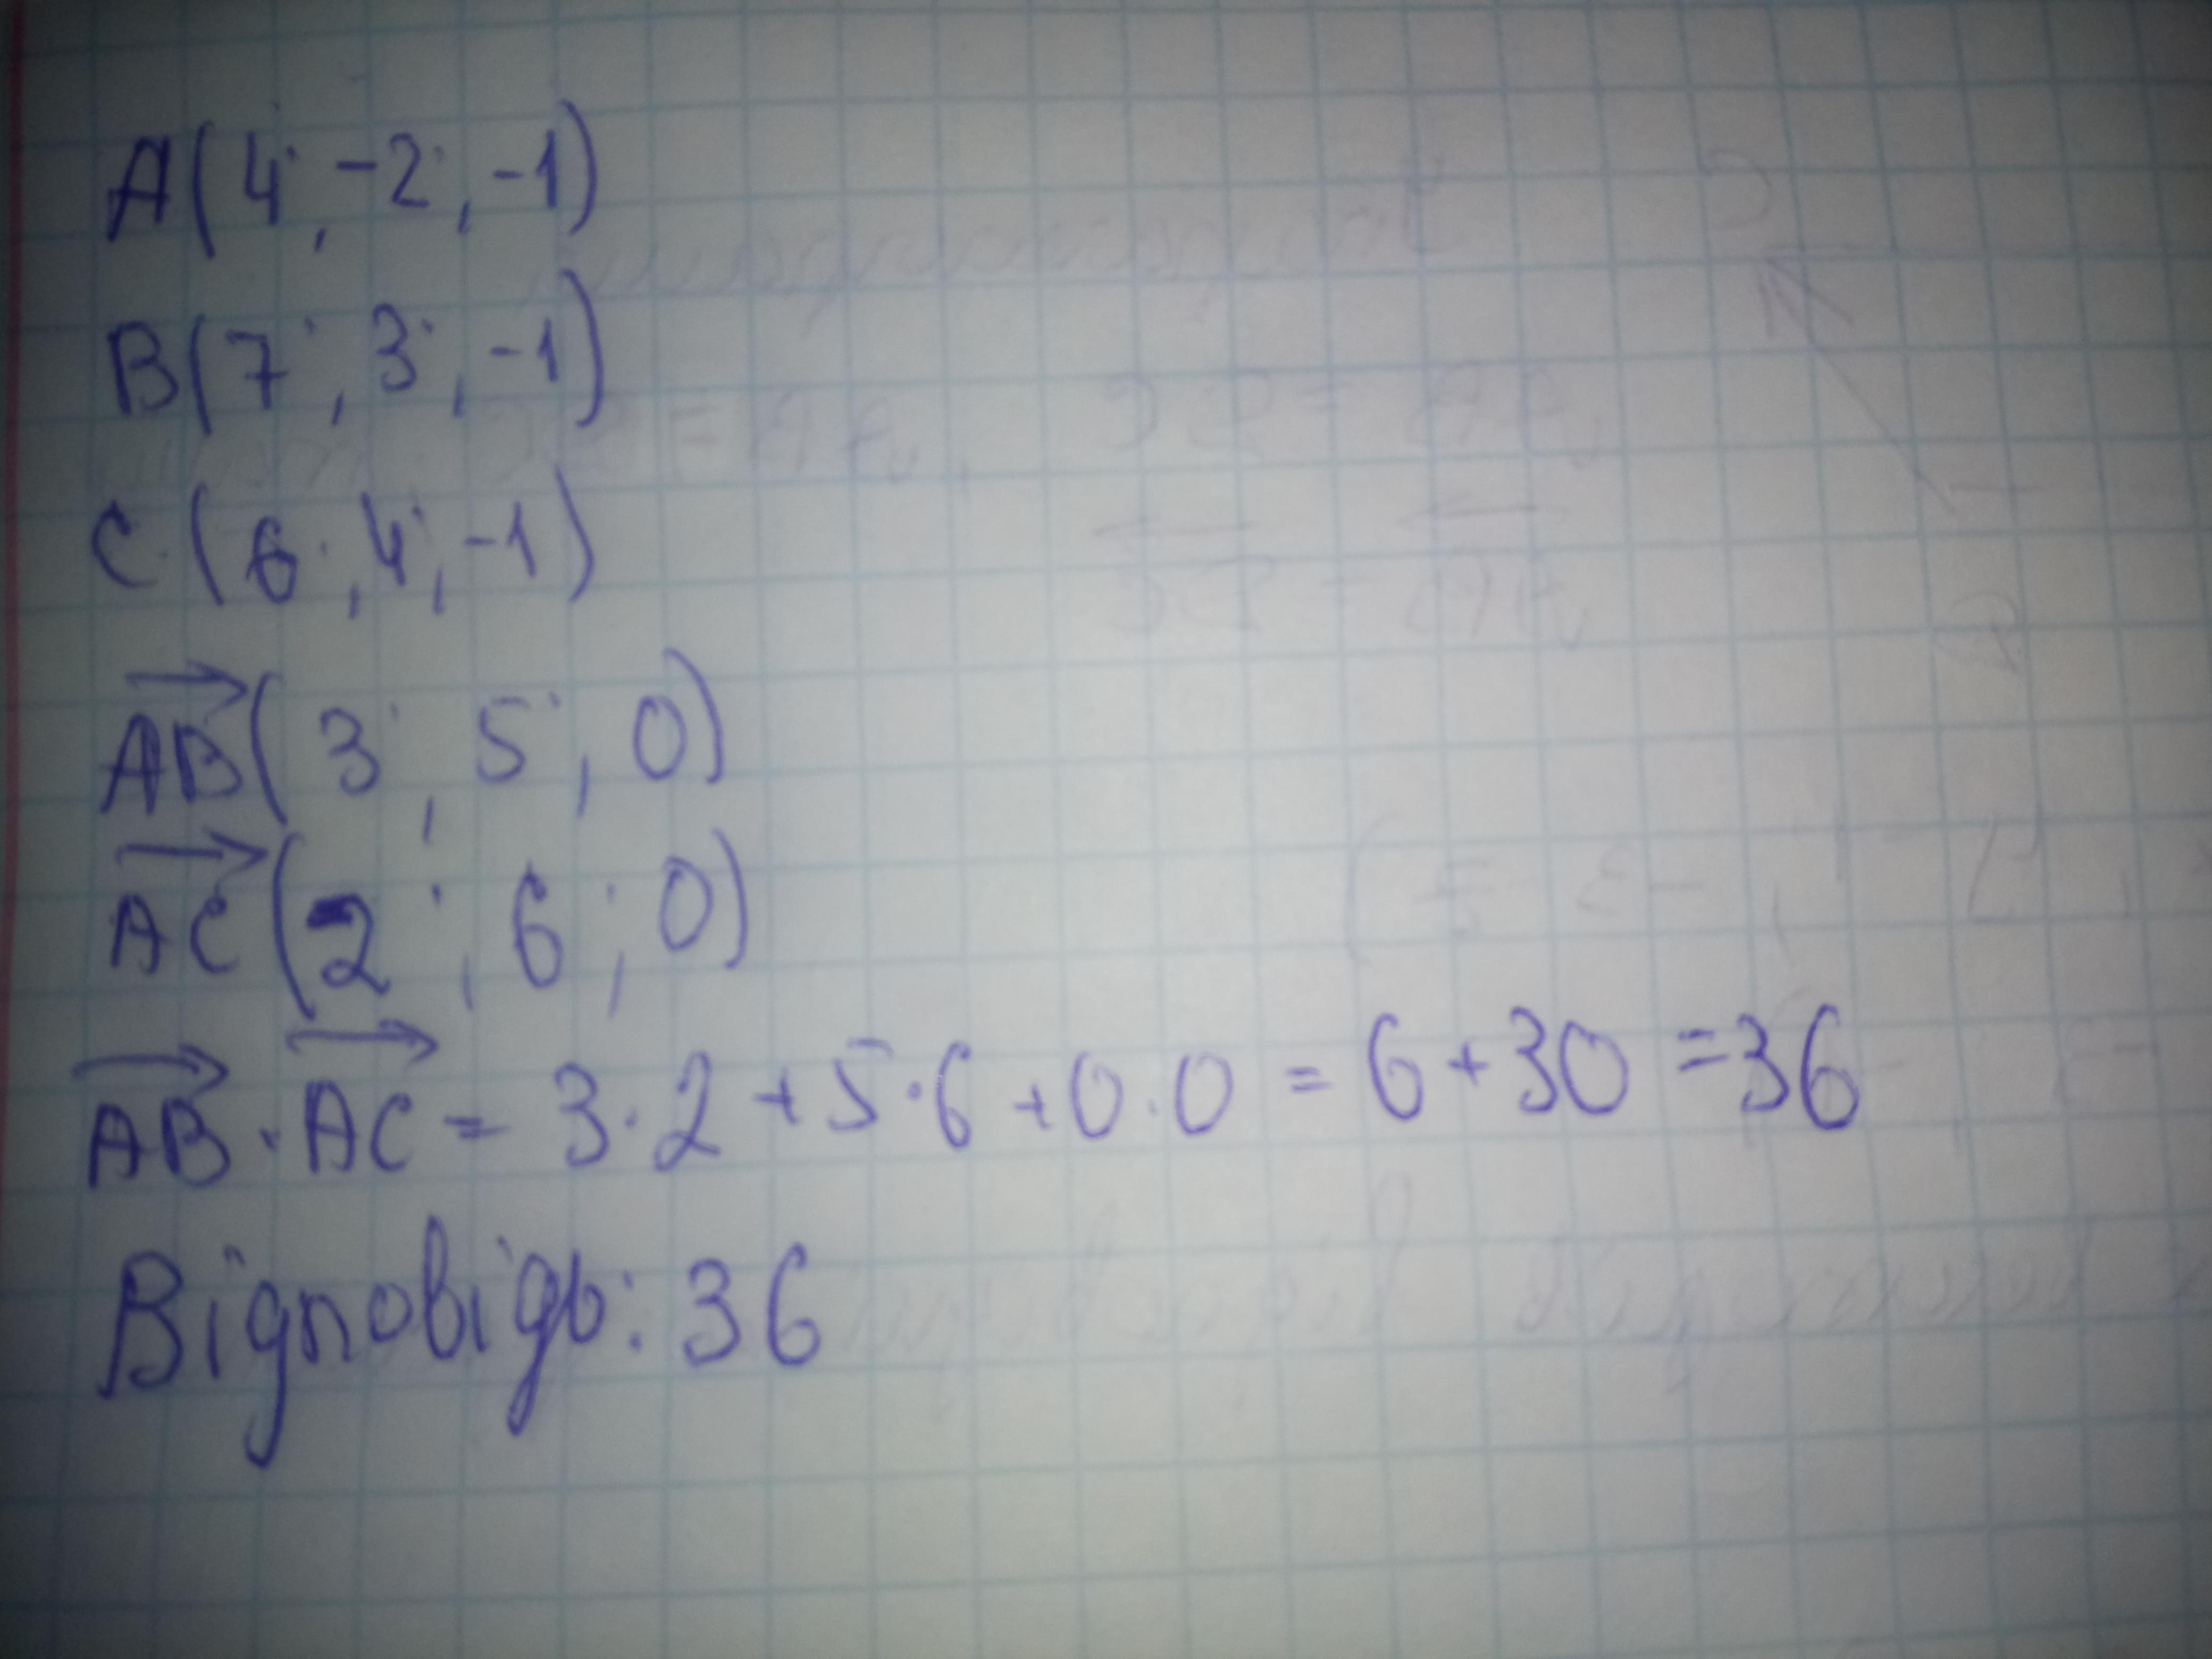 A(4; -2; -1)
B(7; 3; -1)
C(6; 4; -1)
AB(3; 5; 0)
AC(2; 6; 0)
AB · AC = 3 · 2 + 5 · 6 + 0 · 0 = 6 + 30 = 36
Відповідь: 36